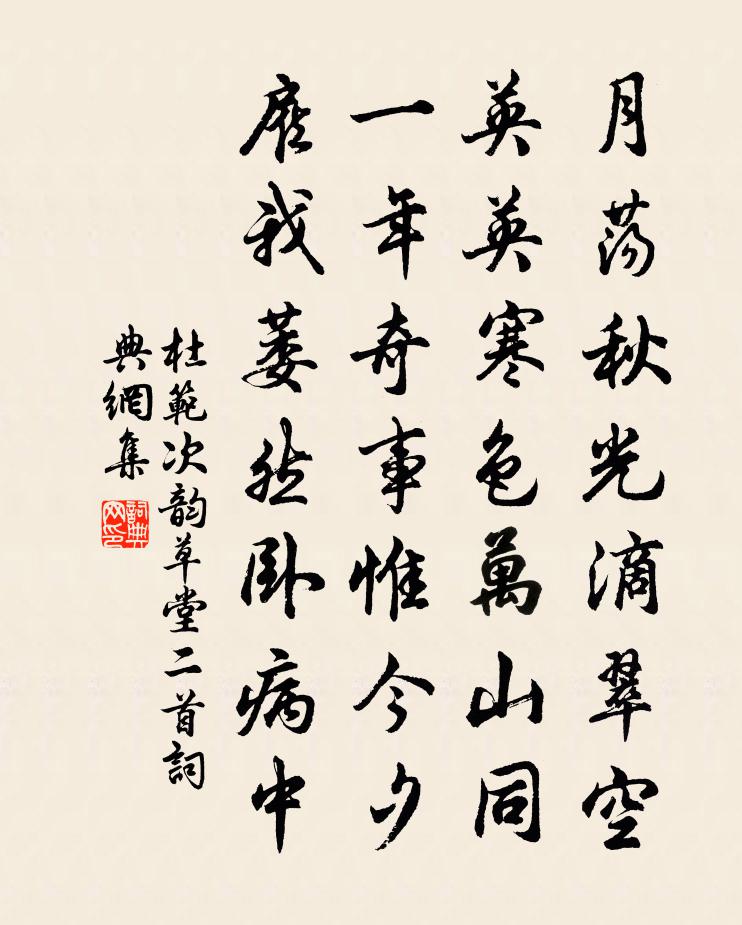 月蕩秋光滴翠空
英英寒色萬山同
一年奇事惟今夕
我萋然卧病中
杜範次韵草堂二首詞
典網集
詞典
网印